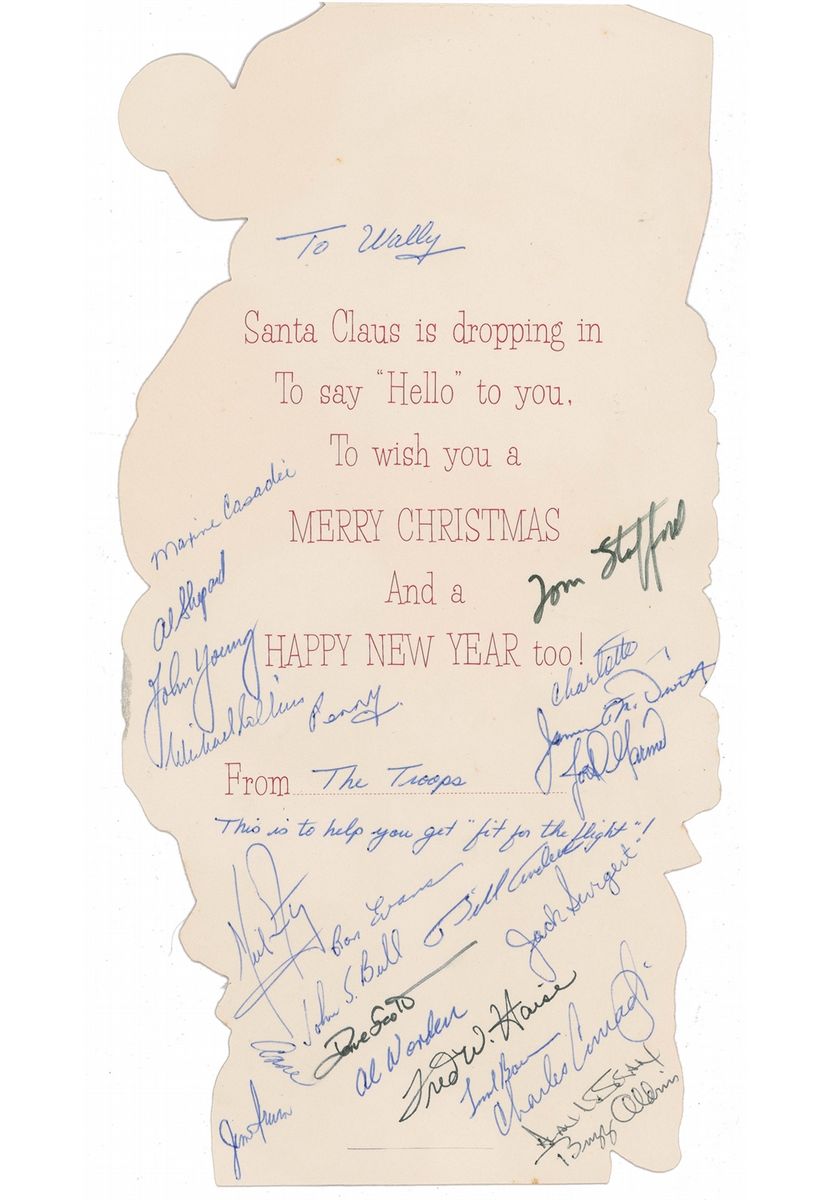 To Wally
Santa Claus is dropping in
To say "Hello" to you,
To wish you a
Maxine Casadei
MERRY CHRISTMAS
Tom Stafford
And a
Al Shepard
HAPPY NEW YEAR too!
John Young
Charlotte
Michael Collins
Penny
James McDivitt
From The Troops
This is to help you get "fit for the flight"!
Ron Evans
Bill Anders
Jack Swigert
John S. Bull
Dave Scott
Al Worden
Fred W. Haise
Charles Conrad Jr.
Jim Irwin
Buzz Aldrin